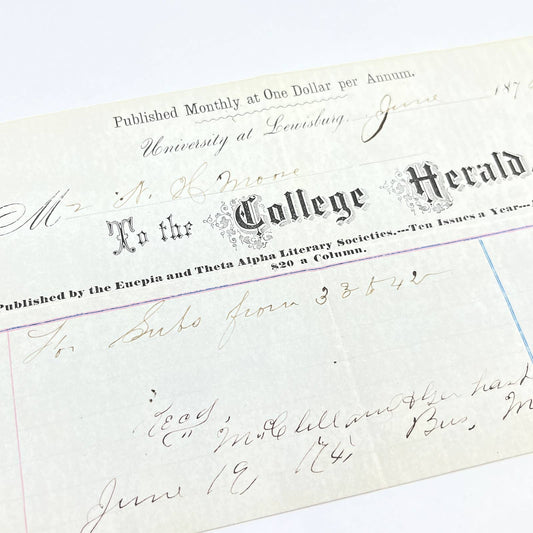 Published Monthly at One Dollar per Annum.
University at Lewisburg, June 187
Mr N. H. Moore
To the College Herald,
Published by the Euepia and Theta Alpha Literary Societies.---Ten Issues a Year---
$20 a Column.
For Subs from 33 to 42
Recd,
McClelland &
June 19, '74, Bus. M